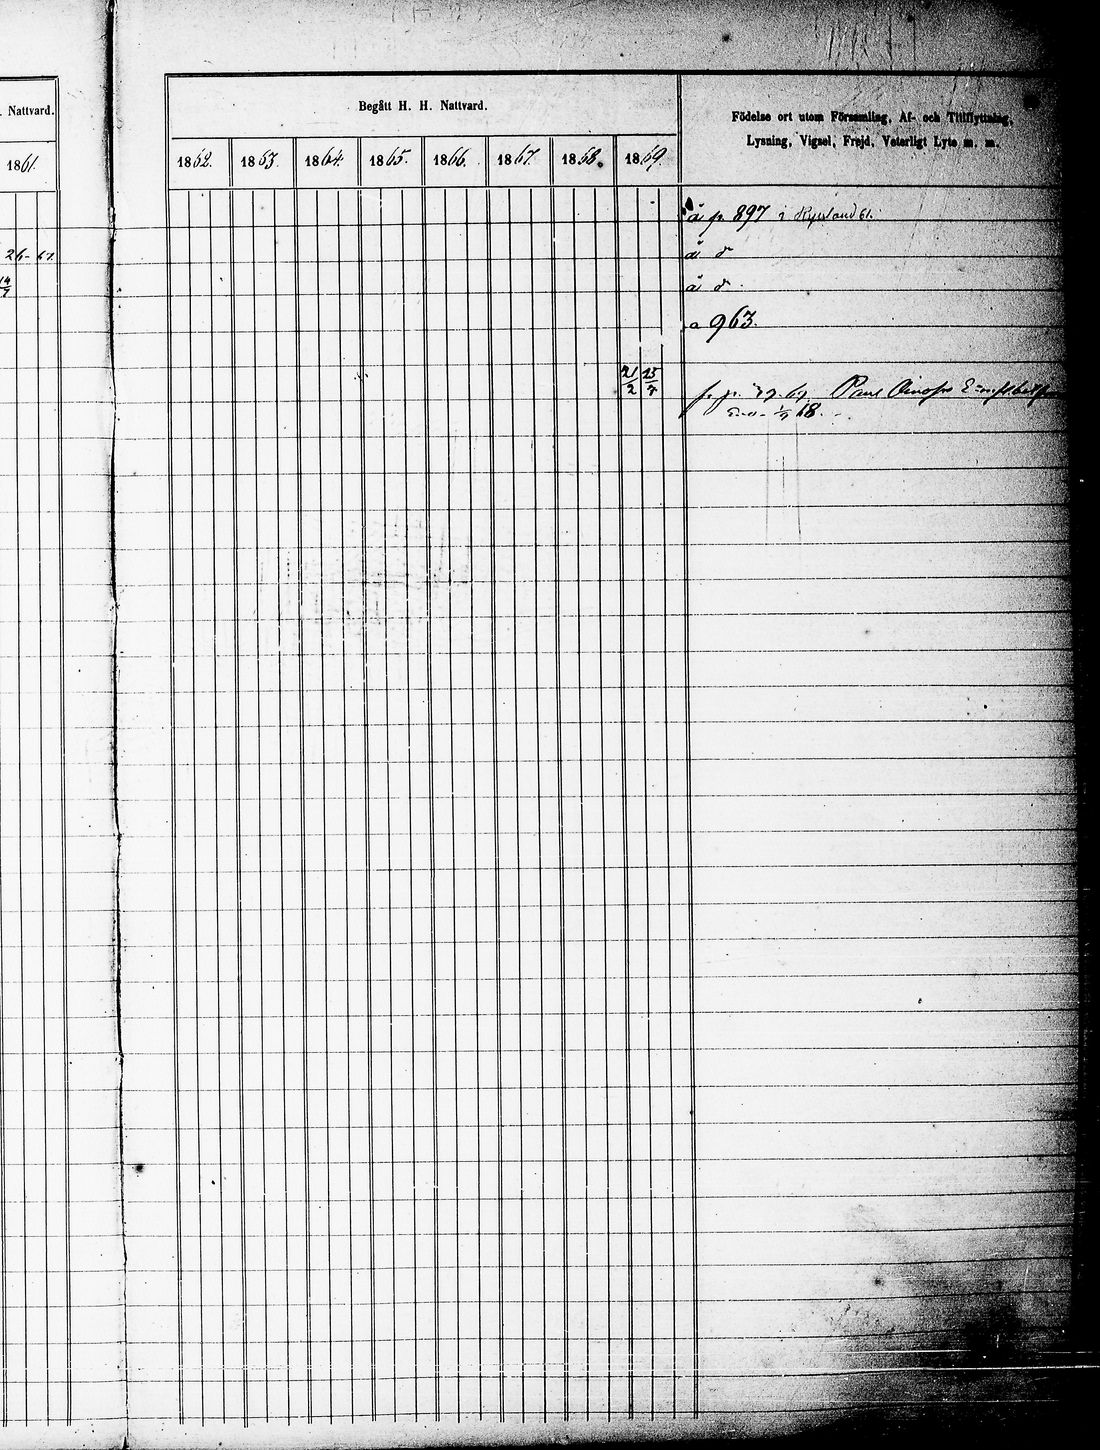 Nattvard.
1861.
26 - 61.
14/7
Begått H. H. Nattvard.
1862. 1863. 1864. 1865. 1866. 1867. 1868. 1869.
Födelse ort utom Församling, Af- och Tillflyttning,
Lysning, Vigsel, Frejd, Veterligt Lyte m. m.
å p. 897 i Ryssland 61.
å d
å d.
a 963.
21/2 25/7
Paul
68.